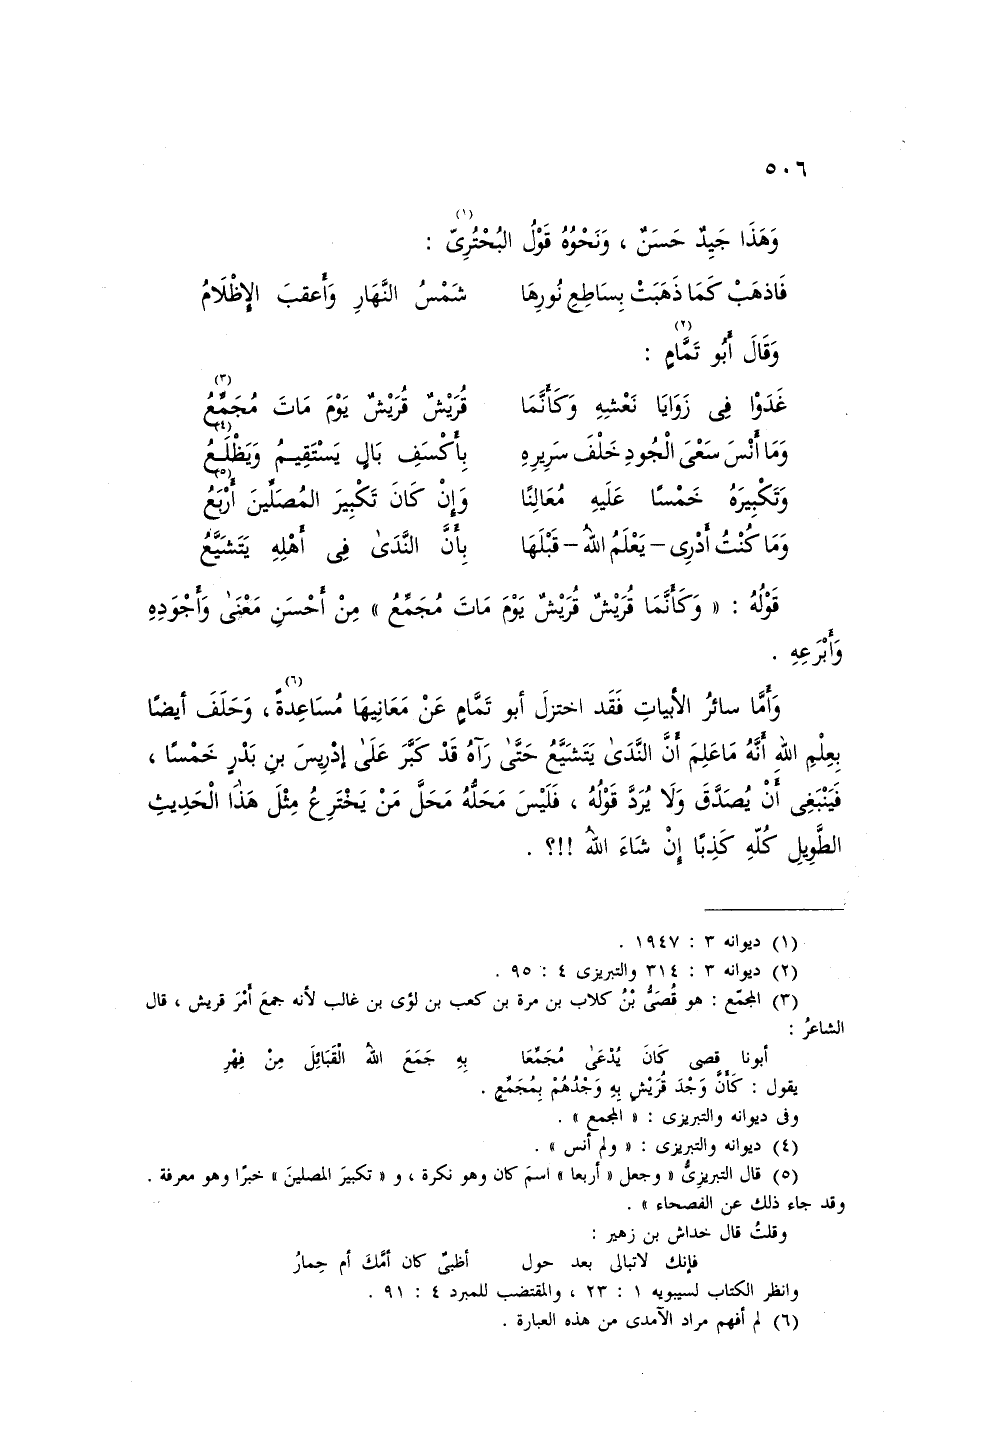 ٥٠٦
وَهَذَا جَيِدٌ حَسَنٌ ، وَنَحْوُهُ قَوْلُ البُحْتُرِىّ (١) :
فَاذهَبْ كَمَا ذَهَبَتْ بِسَاطِعِ نُورِهَا شَمْسُ النَّهَارِ وَأَعقبَ الإِظْلَامُ
وَقَالَ أَبُو تَمَّامٍ (٢) :
غَدَوْا فِى زَوَايَا نَعْشِهِ وَكَأَنَّمَا قُرَيْشٌ قُرَيْشٌ يَوْمَ مَاتَ مُجَمِّعُ (٣)
وَمَا أَنْسَ سَعْىَ الْجُودِ خَلْفَ سَرِيرِهِ بِأَكْسَفِ بَالٍ يَسْتَقِيمُ وَيَظْلَعُ (٤)
وَتَكْبِيرَهُ خَمْسًا عَلَيهِ مُعَالِنًا وَإِنْ كَانَ تَكْبِيرَ المُصَلِّينَ أَرْبَعُ (٥)
وَمَا كُنْتُ أَدْرِى – يَعْلَمُ اللهُ – قَبْلَهَا بِأَنَّ النَّدَىٰ فِى أَهْلِهِ يَتَشَيَّعُ
قَوْلُهُ : « وَكَأَنَّمَا قُرَيْشٌ قُرَيْشٌ يَوْمَ مَاتَ مُجَمِّعُ » مِنْ أَحْسَنِ مَعْنَىٰ وَأَجْوَدِهِ
وَأَبْرَعِهِ .
وَأَمَّا سائرُ الأبياتِ فَقَد اختزلَ أبو تَمَّامٍ عَنْ مَعَانِيهَا مُسَاعِدةً (٦) ، وَحَلَفَ أيضًا
بِعِلْمِ اللهِ أَنَّهُ مَاعَلِمَ أَنَّ النَّدَىٰ يَتَشَيَّعُ حَتَّىٰ رَآهُ قَدْ كَبَّرَ عَلَىٰ إدْرِيسَ بنِ بَدْرٍ خَمْسًا ،
فَيَنْبَغِى أَنْ يُصَدَّقَ وَلَا يُرَدَّ قَوْلُهُ ، فَلَيْسَ مَحَلُّهُ مَحَلَّ مَنْ يَخْتَرِعُ مِثْلَ هَذَا الْحَدِيثِ
الطَّوِيلِ كُلّهِ كَذِبًا إِنْ شَاءَ اللهُ !!؟ .
(١) ديوانه ٣ : ١٩٤٧ .
(٢) ديوانه ٣ : ٣١٤ والتبريزى ٤ : ٩٥ .
(٣) المجمّع : هو قُصَىُّ بْنُ كلاب بن مرة بن كعب بن لؤى بن غالب لأنه جمعَ أَمْرَ قريش ، قال
الشاعرُ :
أبونا قصى كَانَ يُدْعَىٰ مُجَمِّعَا بِهِ جَمَعَ اللهُ الْقَبَائِلَ مِنْ فِهْرِ
يقول : كَأَنَّ وَجْدَ قُرَيْشٍ بِهِ وَجْدُهُمْ بِمُجَمِّعٍ .
وفى ديوانه والتبريزى : « المجمع » .
(٤) ديوانه والتبريزى : « ولم أنس » .
(٥) قال التبريزىُّ « وجعل « أربعا » اسمَ كان وهو نكرة ، و « تكبيرَ المصلينَ » خبرًا وهو معرفة .
وقد جاء ذلك عن الفصحاء » .
وقلتُ قال خداش بن زهير :
فإنك لاتبالى بعد حول أظبىٌ كان أمَّكَ أم حِمارُ
وانظر الكتاب لسيبويه ١ : ٢٣ ، والمقتضب للمبرد ٤ : ٩١ .
(٦) لم أفهم مراد الآمدى من هذه العبارة .